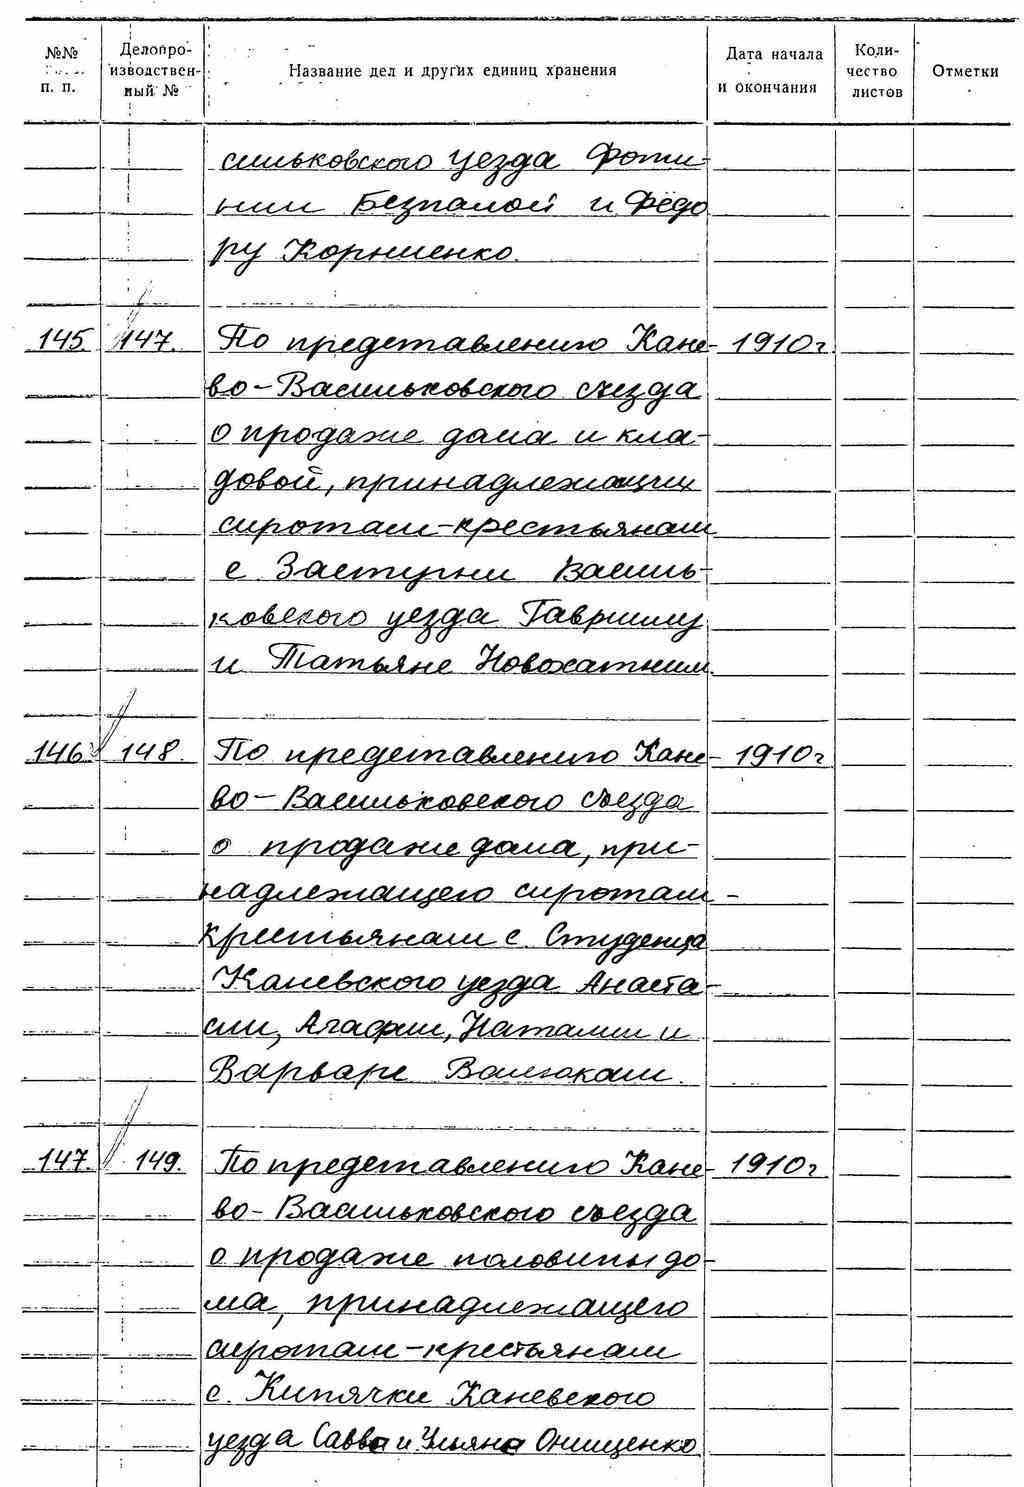 №№ п. п. Делопро-изводствен-ный № Название дел и других единиц хранения Дата начала и окончания Коли-чество листов Отметки
сильковского уезда Фоти-
нии Безпалой и Фёдо
ру Корниенко.
145. 147. По представлению Кане- 1910г.
во-Васильковского съезда
о продаже дома и кла-
довой, принадлежащих
сиротам-крестьянам
с. Заступни Василь-
ковского уезда Гавриилу
и Татьяне Новохатним.
146. 148. По представлению Кане- 1910г
во-Васильковского съезда
о продаже дома, при-
надлежащего сиротам-
крестьянам с. Студенца
Каневского уезда Анаста-
сии, Агафии, Наталии и
Варваре
147. 149. По представлению Кане- 1910г
во-Васильковского съезда
о продаже половины до-
ма, принадлежащего
сиротам-крестьянам
с. Кипячки Каневского
уезда Савва и Ульяна Онищенко